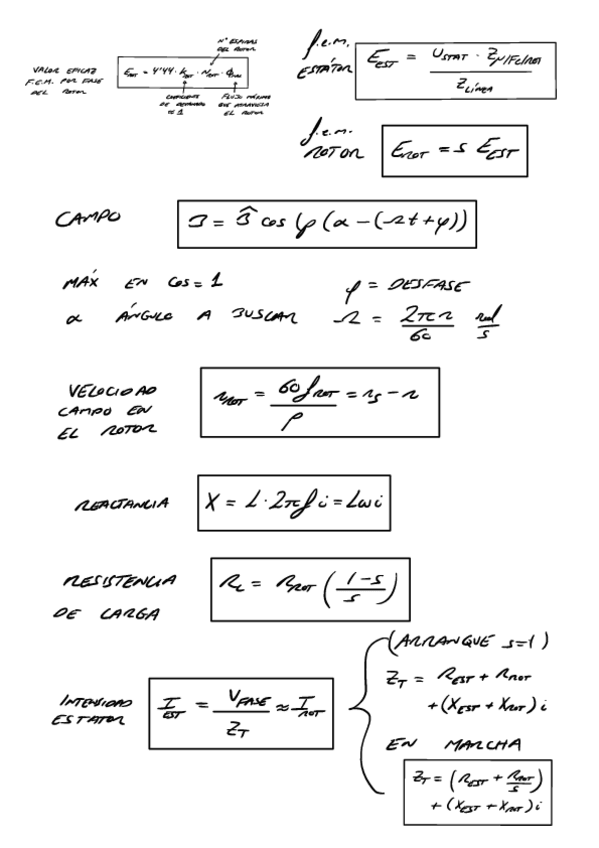 Nº ESPIRAS
DEL ROTOR
VALOR EFICAZ
F.E.M. POR FASE
DEL ROTOR
E_ROT = 4'44 · k_ROT · N_ROT · Φ
COEFICIENTE
DE DEVANADO
≈ 1
FLUJO MÁXIMO
QUE ATRAVIESA
EL ROTOR
f.e.m.
ESTÁTOR
E_EST = U_STAT · Z_N/FC/ROT / Z_LÍNEA
f.e.m.
ROTOR
E_ROT = s E_EST
CAMPO
B = B̂ cos (p (α - (Ωt + φ))
MÁX EN cos = 1
φ = DESFASE
α ÁNGULO A BUSCAR
Ω = 2πn / 60 rad/s
VELOCIDAD
CAMPO EN
EL ROTOR
n_ROT = 60 f_ROT / p = n_s - n
REACTANCIA
X = L · 2πf i = Lωi
RESISTENCIA
DE CARGA
R_C = R_ROT (1-s / s)
INTENSIDAD
ESTATOR
I_EST = V_FASE / Z_T ≈ I_ROT
(ARRANQUE s=1)
Z_T = R_EST + R_ROT
+ (X_EST + X_ROT) i
EN MARCHA
Z_T = (R_EST + R_ROT / s)
+ (X_EST + X_ROT) i